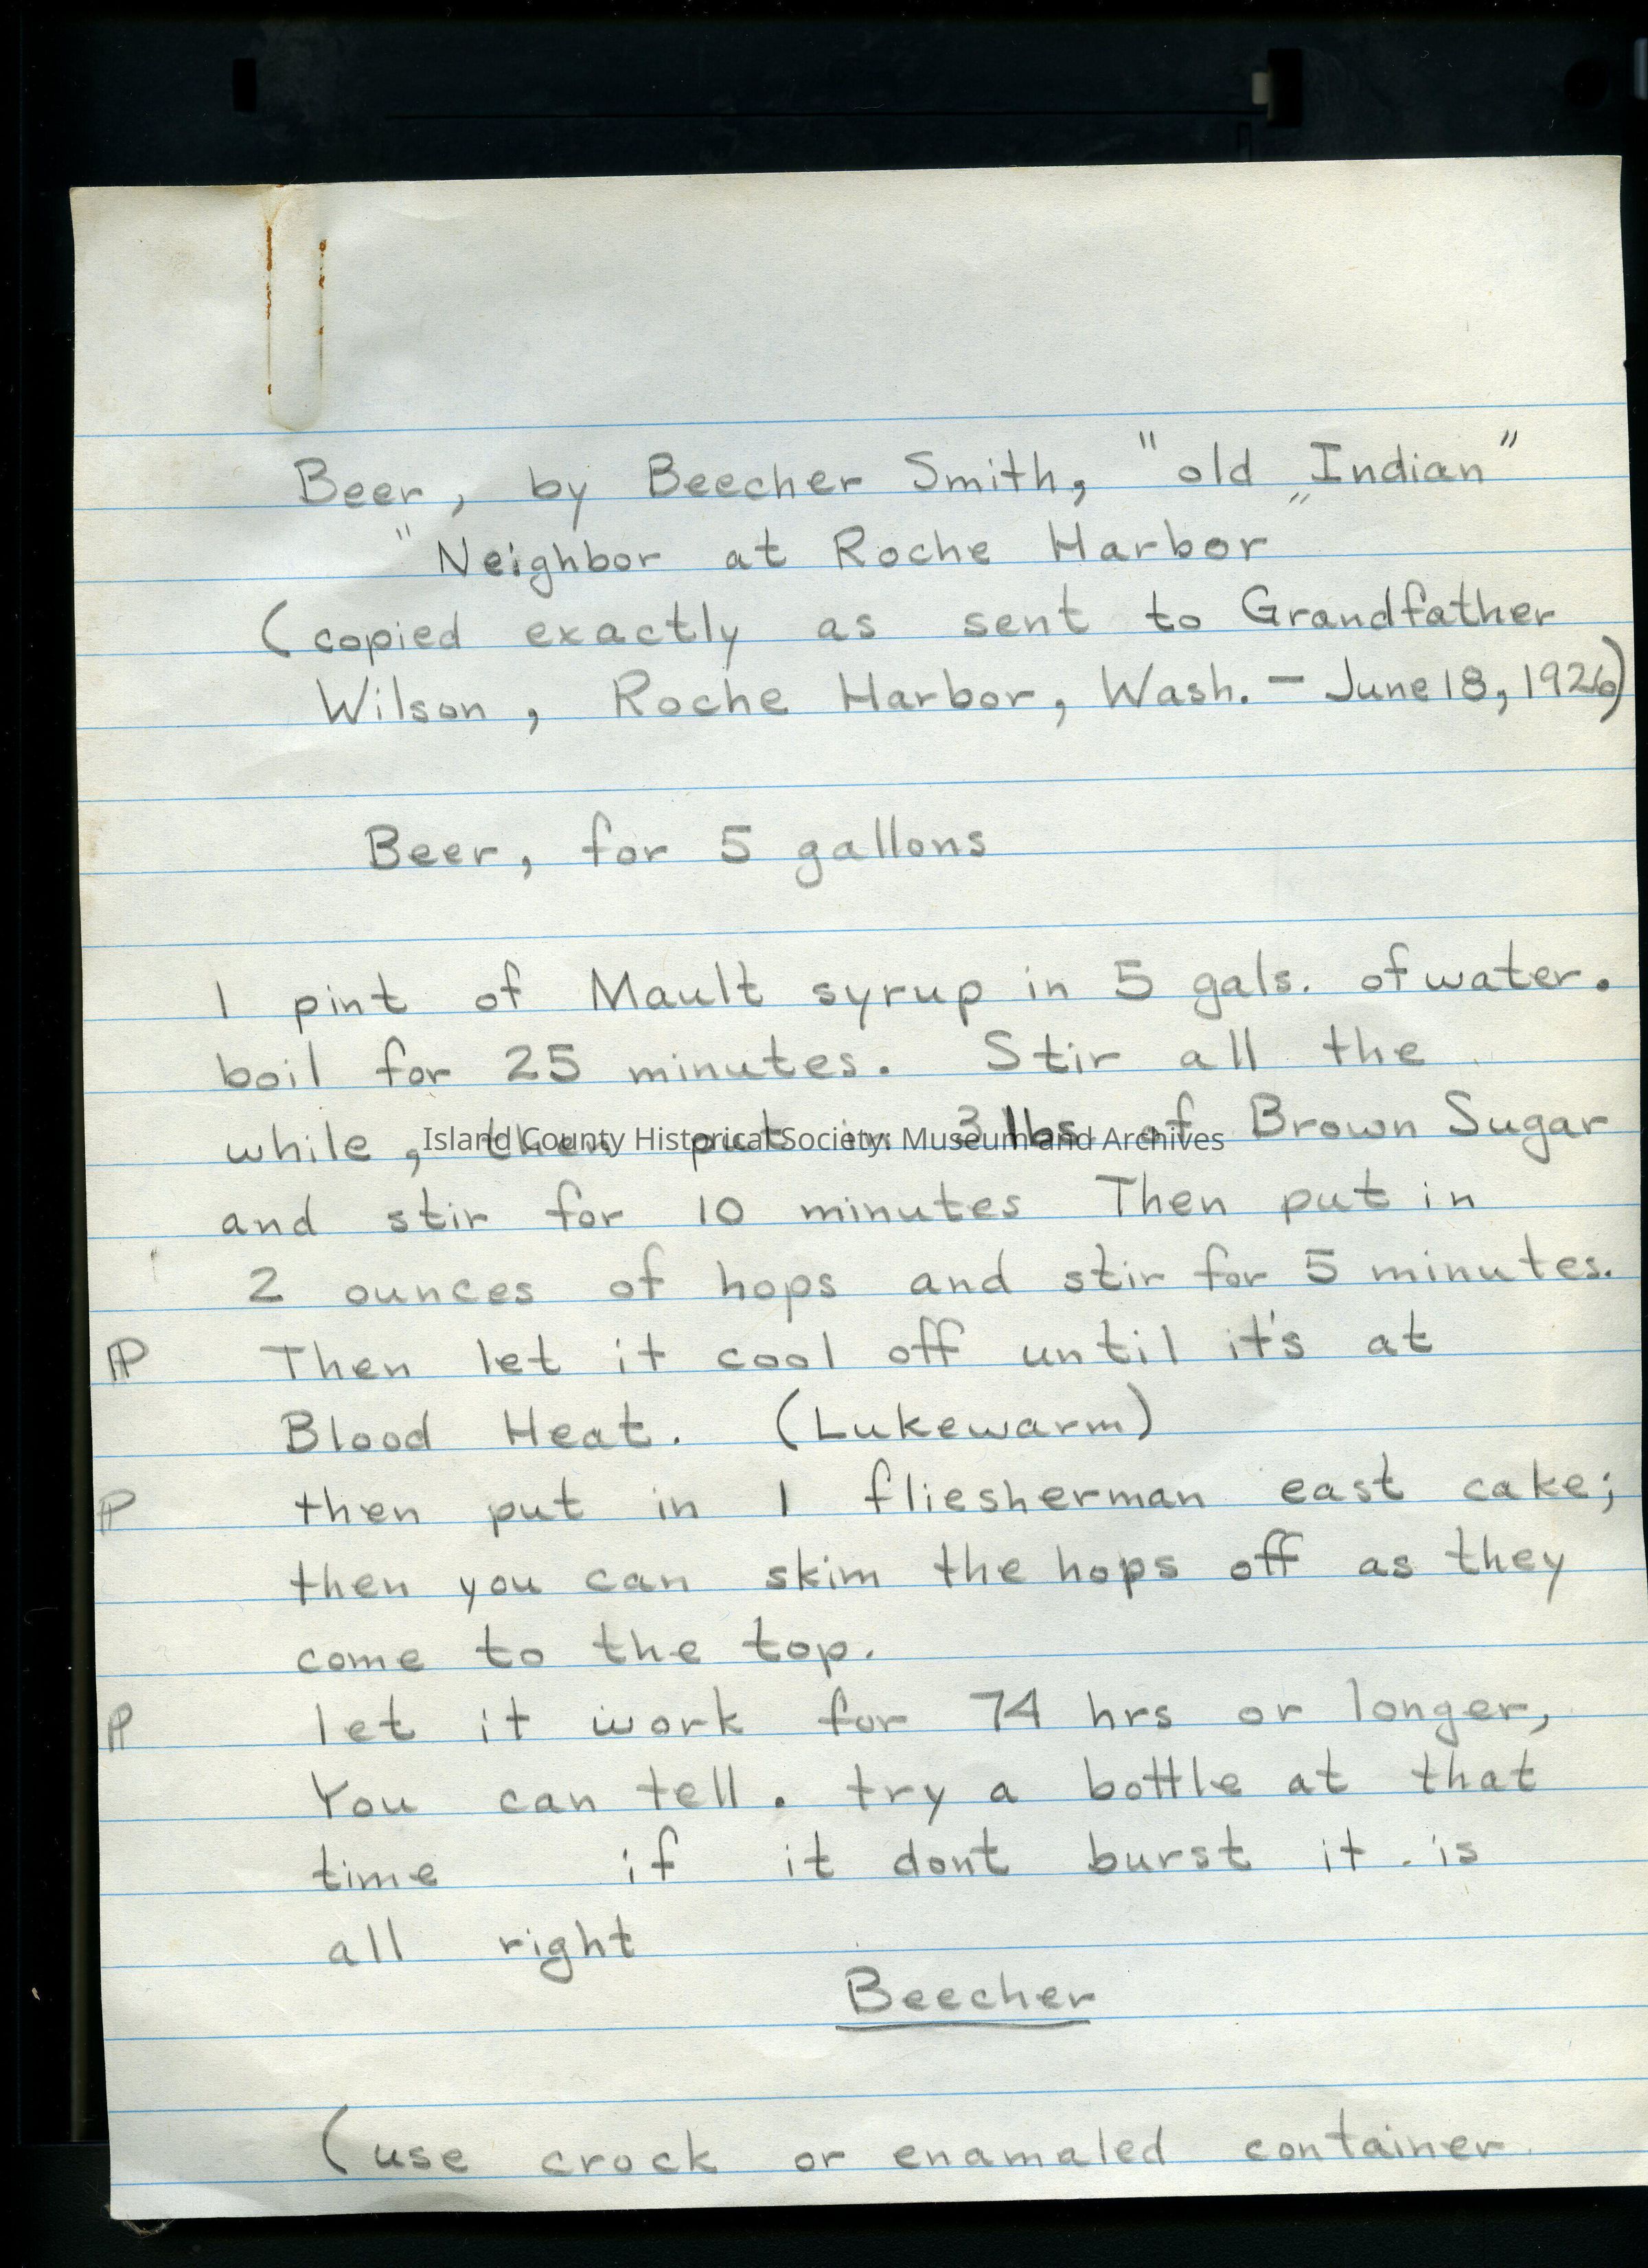 Beer, by Beecher Smith, "old Indian"
"Neighbor at Roche Harbor"
(copied exactly as sent to Grandfather
Wilson, Roche Harbor, Wash. - June 18, 1926)
Beer, for 5 gallons
1 pint of Mault syrup in 5 gals. of water.
boil for 25 minutes. Stir all the
while, then put in 3 lbs. of Brown Sugar
Island County Historical Society: Museum and Archives
and stir for 10 minutes Then put in
2 ounces of hops and stir for 5 minutes.
¶ Then let it cool off until it's at
Blood Heat. (Lukewarm)
¶ then put in 1 fliesherman east cake;
then you can skim the hops off as they
come to the top.
¶ let it work for 74 hrs or longer,
You can tell. try a bottle at that
time if it dont burst it is
all right
Beecher
(use crock or enamaled container